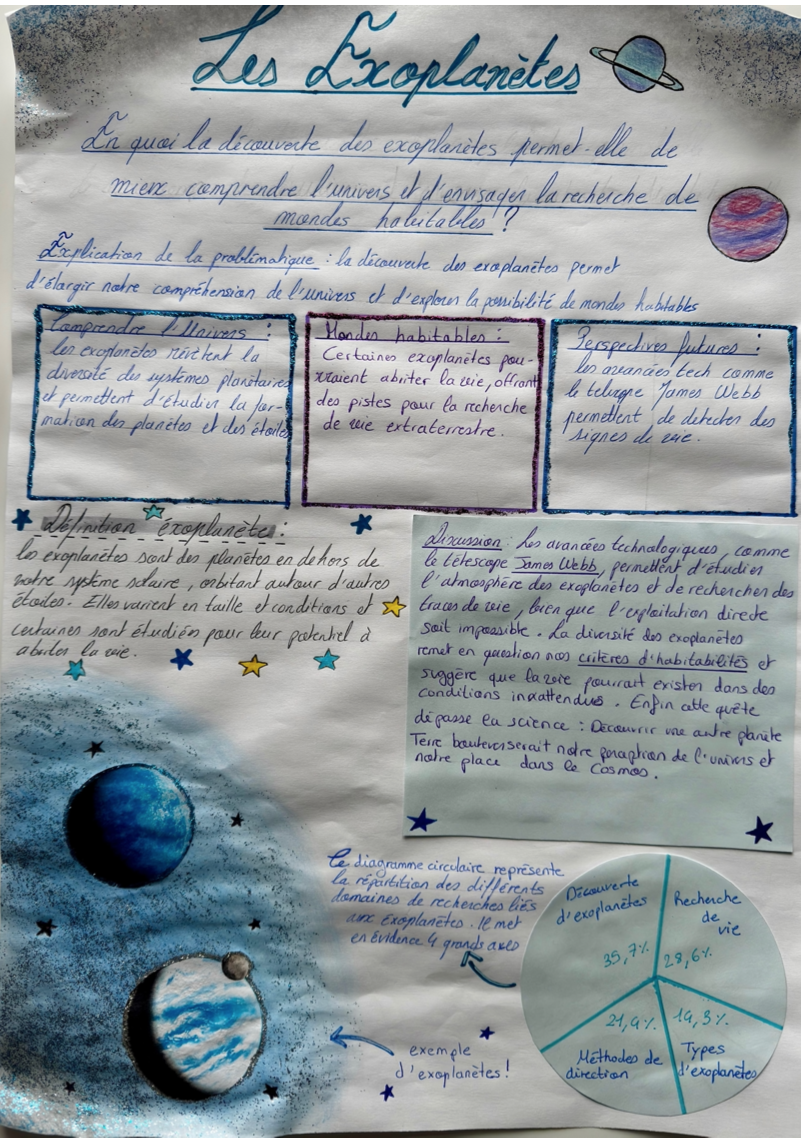 Les Exoplanètes
En quoi la découverte des exoplanètes permet-elle de
mieux comprendre l'univers et d'envisager la recherche de
mondes habitables ?
Explication de la problématique : la découverte des exoplanètes permet
d'élargir notre compréhension de l'univers et d'explorer la possibilité de mondes habitables
Comprendre l'Univers :
les exoplanètes révèlent la
diversité des systèmes planétaires
et permettent d'étudier la for-
mation des planètes et des étoiles
Mondes habitables :
Certaines exoplanètes pou-
rraient abriter la vie, offrant
des pistes pour la recherche
de vie extraterrestre.
Perspectives futures :
les avancées tech comme
le telescope James Webb
permettent de detecter des
signes de vie.
Définition éxoplanète :
les exoplanètes sont des planètes en dehors de
notre système solaire, orbitant autour d'autres
étoiles. Elles varient en taille et conditions et
certaines sont étudiées pour leur potentiel à
abriter la vie.
Discussion : Les avancées technologiques, comme
le télescope James Webb, permettent d'étudier
l'atmosphère des exoplanètes et de rechercher des
traces de vie, bien que l'exploitation directe
soit impossible. La diversité des exoplanètes
remet en question nos critères d'habitabilités et
suggère que la vie pourrait exister dans des
conditions inattendues. Enfin cette quête
dépasse la science : Découvrir une autre planète
Terre bouleverserait notre perception de l'univers et
notre place dans le Cosmos.
Ce diagramme circulaire représente
la répartition des différents
domaines de recherches liés
aux éxoplanètes. Il met
en évidence 4 grands axes
Découverte
d'exoplanètes
35,7%
Recherche
de
vie
28,6%
21,4%
Méthodes de
direction
14,3%
Types
d'exoplanètes
exemple
d'exoplanètes !